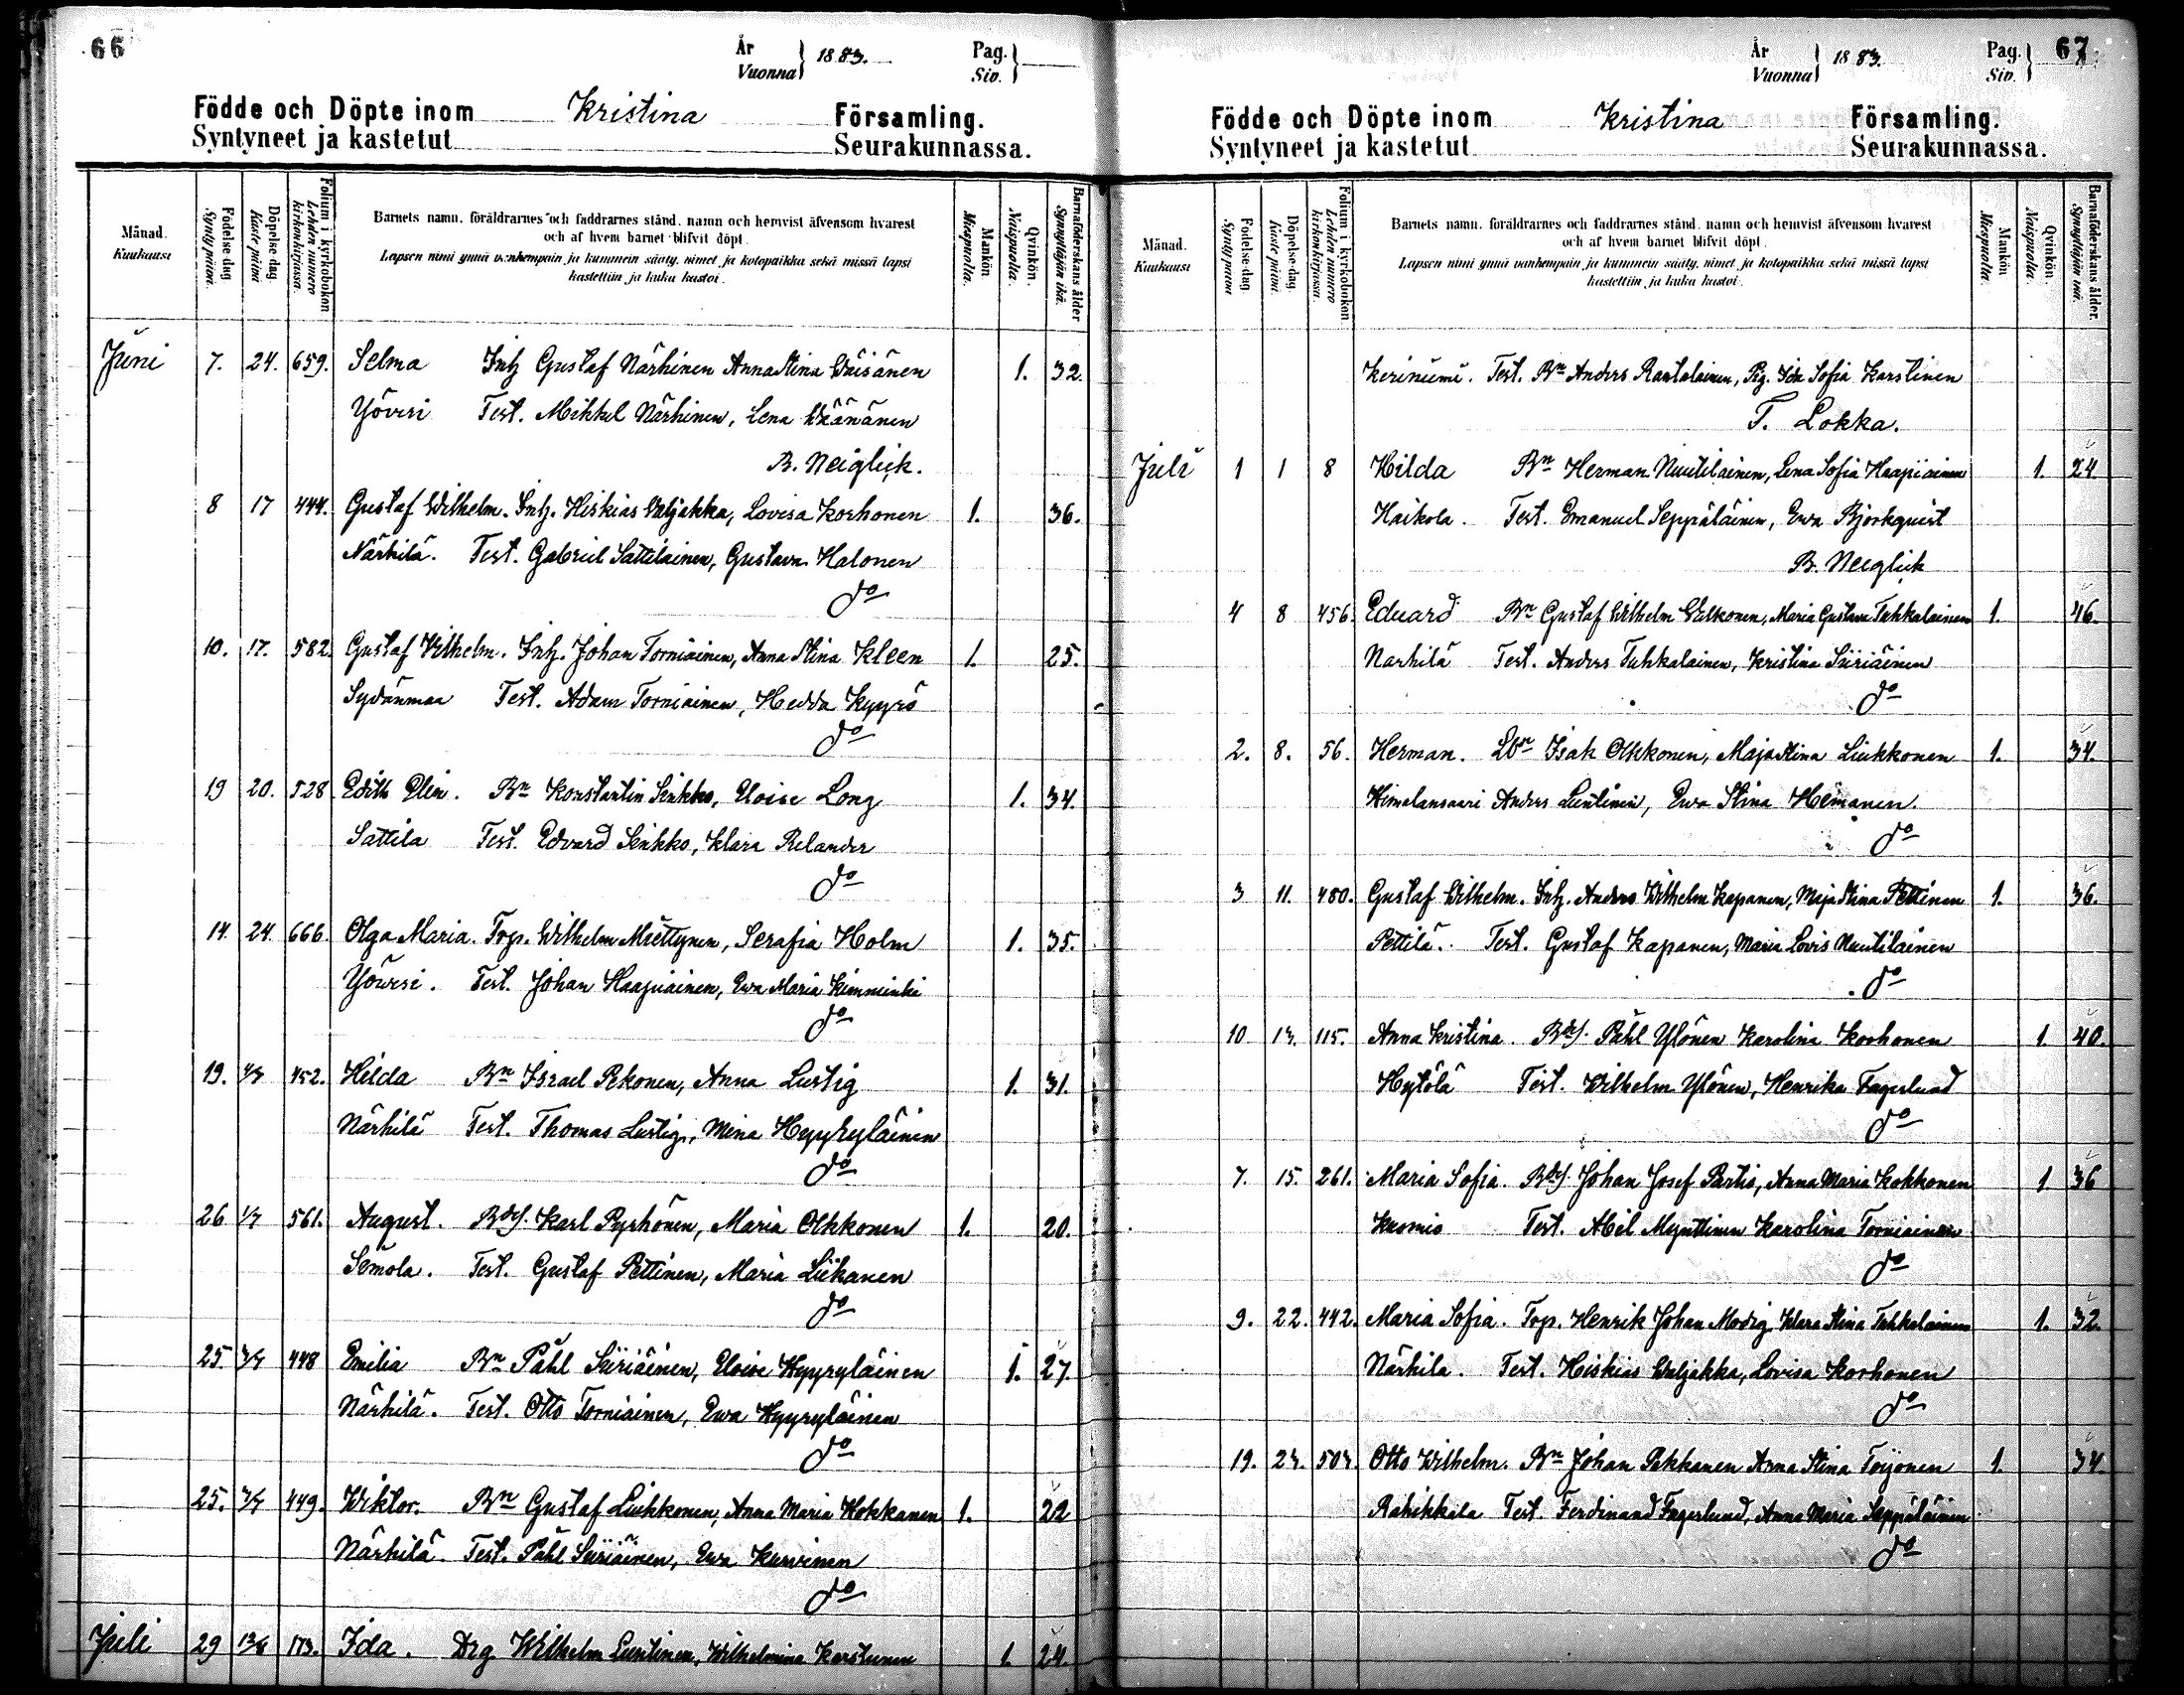 66
År Vuonna } 1883. Pag. Siv. }
Födde och Döpte inom Kristina Församling.
Syntyneet ja kastetut Seurakunnassa.
Månad. Kuukausi
Födelse-dag. Synty päivä.
Döpelse-dag. Kaste päivä
Folium i kyrkoboken Lehden numero kirkonkirjassa.
Barnets namn, föräldrarnes och faddrarnes stånd, namn och hemvist äfvensom hvarest
och af hvem barnet blifvit döpt.
Lapsen nimi ynnä vanhempain ja kummein sääty, nimet ja kotopaikka sekä missä lapsi
kastettiin ja kuka kastoi.
Mankön. Miespuolta.
Qvinkön. Naispuolta.
Barnaföderskans ålder Synnyttäjän ikä.
Juni 7. 24. 659. Selma Inh Gustaf Närhinen Anna Stina Väisänen 1. 32.
Yövesi Test. Mikkel Närhinen, Lena Väänänen
B. Neiglick.
8 17 444. Gustaf Wilhelm. Inh. Hiskias Valjakka, Lovisa Korhonen 1. 36.
Närhilä. Test. Gabriel Sattilainen, Gustava Halonen
do
10. 17. 582. Gustaf Vilhelm. Inh. Johan Torniainen, Anna Stina Kleen 1. 25.
Sydänmaa Test. Adam Torniainen, Hedda Kyyrö
do
19 20. 528 Edith Elin. Bn Konstantin Sinkko, Eloise Long 1. 34.
Sattila Test. Edvard Sinkko, Klara Relander
do
14. 24. 666. Olga Maria. Torp. Wilhelm Miettynen, Serafia Holm 1. 35.
Yövesi. Test. Johan Haajiainen, Ewa Maria Kimminki
do
19. 1/7 452. Hilda Bn Israel Pekonen, Anna Lustig 1. 31.
Närhilä Test. Thomas Lustig, Mina Hyyryläinen
do
26 1/7 561. August. Bds. Karl Pyrhönen, Maria Olkkonen 1. 20.
Simola. Test. Gustaf Pettinen, Maria Liikanen
do
25 448 Emilia Bn Påhl Siiriäinen, Eloise Hyyryläinen 1. 27.
Närhilä. Test. Otto Torniainen, Ewa Hyyryläinen
do
25. 449. Wiktor. Bn Gustaf Liukkonen, Anna Maria Hokkanen 1. 22
Närhilä. Test. Påhl Siiriäinen, Ewa Kurvinen
do
Juli 29 173. Ida. Drg Wilhelm Luntinen, Wilhelmina Karstunen 1. 24.
År Vuonna } 1883. Pag. Siv. } 67.
Födde och Döpte inom Kristina Församling.
Syntyneet ja kastetut Seurakunnassa.
Månad. Kuukausi
Födelse-dag. Synty päivä
Döpelse-dag. Kaste päivä.
Folium i kyrkoboken. Lehden numero kirkonkirjassa.
Barnets namn, föräldrarnes och faddrarnes stånd, namn och hemvist äfvensom hvarest
och af hvem barnet blifvit döpt.
Lapsen nimi ynnä vanhempain ja kummein sääty, nimet ja kotopaikka sekä missä lapsi
kastettiin ja kuka kastoi.
Mankön. Miespuolta.
Qvinkön. Naispuolta.
Barnaföderskans ålder. Synnyttäjän ikä.
Keriniemi. Test. Bn Anders Rantalainen, Pig. Ida Sofia Karstinen
T. Lokka.
Juli 1 1 8 Hilda Bn Herman Nuutilainen, Lena Sofia Haapiainen 1. 24
Haikola. Test. Emanuel Seppäläinen, Ewa Björkqvist
B. Neiglick
4 8 456. Eduard Bn Gustaf Wilhelm Valkonen, Maria Gustava Tuhkalainen 1. 46.
Närhilä Test. Anders Tuhkalainen, Kristina Siiriäinen
do
2. 8. 56. Herman. Lbn Isak Olkkonen, Maja Stina Liukkonen 1. 34.
Himalansaari Anders Luntinen, Ewa Stina Heimanen.
do
3 11. 480. Gustaf Wilhelm. Inh. Anders Wilhelm Kapanen, Maja Stina Pettinen 1. 36.
Pettilä. Test. Gustaf Kapanen, Maria Lovis Nuutilainen
do
10 13. 115. Anna Kristina. Bds. Påhl Ylönen Karolina Korhonen 1. 40.
Hytölä Test. Wilhelm Ylönen, Henrika Fagerlund
do
7. 15. 261. Maria Sofia. Bds. Johan Josef Partio, Anna Maria Kokkonen 1. 36
Kuomio Test. Abel Mynttinen Karolina Torniainen
do
9. 22. 442. Maria Sofia. Torp. Henrik Johan Modig, Klara Stina Tuhkalainen 1. 32.
Närhilä. Test. Hiskias Valjakka, Lovisa Korhonen
do
19. 23. 503. Otto Wilhelm. Bn Johan Pakkanen Anna Stina Toijonen 1. 34.
Rahikkala Test. Ferdinand Fagerlund, Anna Maria Seppäläinen
do